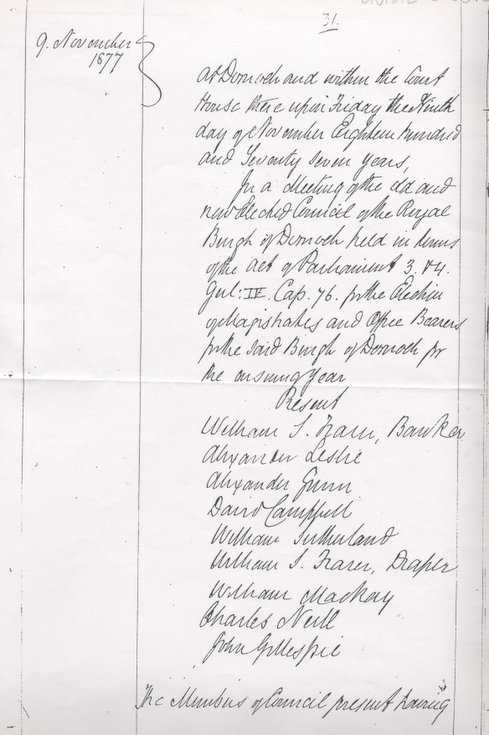 31.
9. November
1877
At Dornoch and within the Court
House there upon Friday the Ninth
day of November Eighteen hundred
and Seventy seven years,
In a Meeting of the old and
new Elected Council of the Royal
Burgh of Dornoch held in terms
of the Act of Parliament 3. & 4.
Gul: IV. Cap. 76. for the Election
of Magistrates and Office Bearers
for the said Burgh of Dornoch for
the ensuing Year
Present
William S. Fraser, Banker
Alexander Leslie
Alexander Gunn
David Campbell
William Sutherland
William S. Fraser, Draper
William Mackay
Charles Neill
John Gillespie
The Members of Council present having